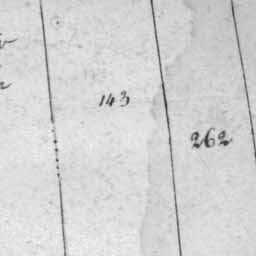 143
262